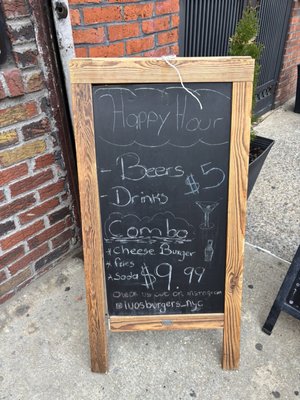 Happy Hour
- Beers $5
- Drinks
Combo
* Cheese Burger
* Fries
* Soda $9.99
Check us out on instagram
@luosburgers_nyc